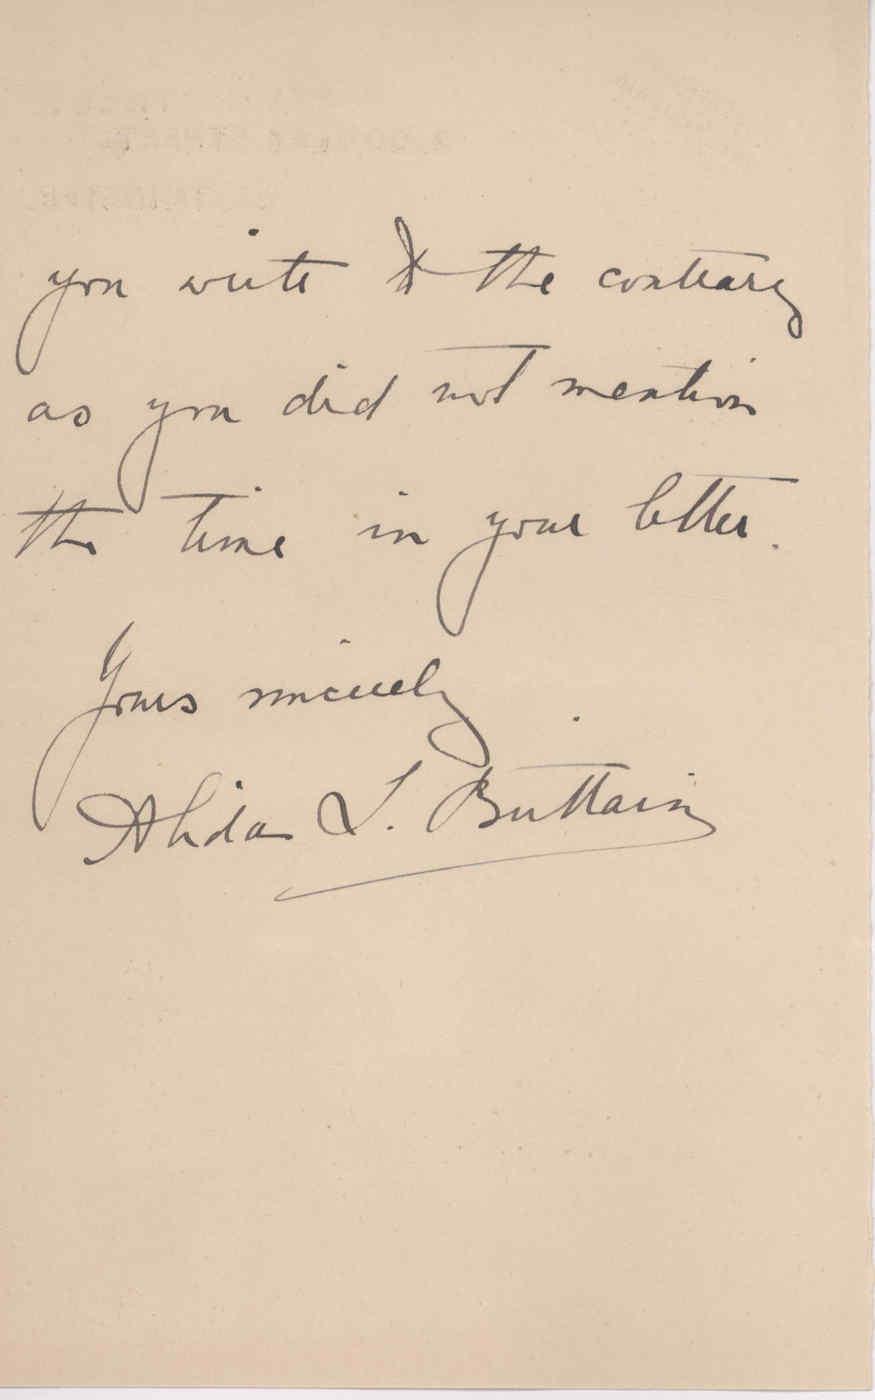 you write to the contrary
as you did not mention
the time in your letter.
Yours sincerely
Alida L. Brittain